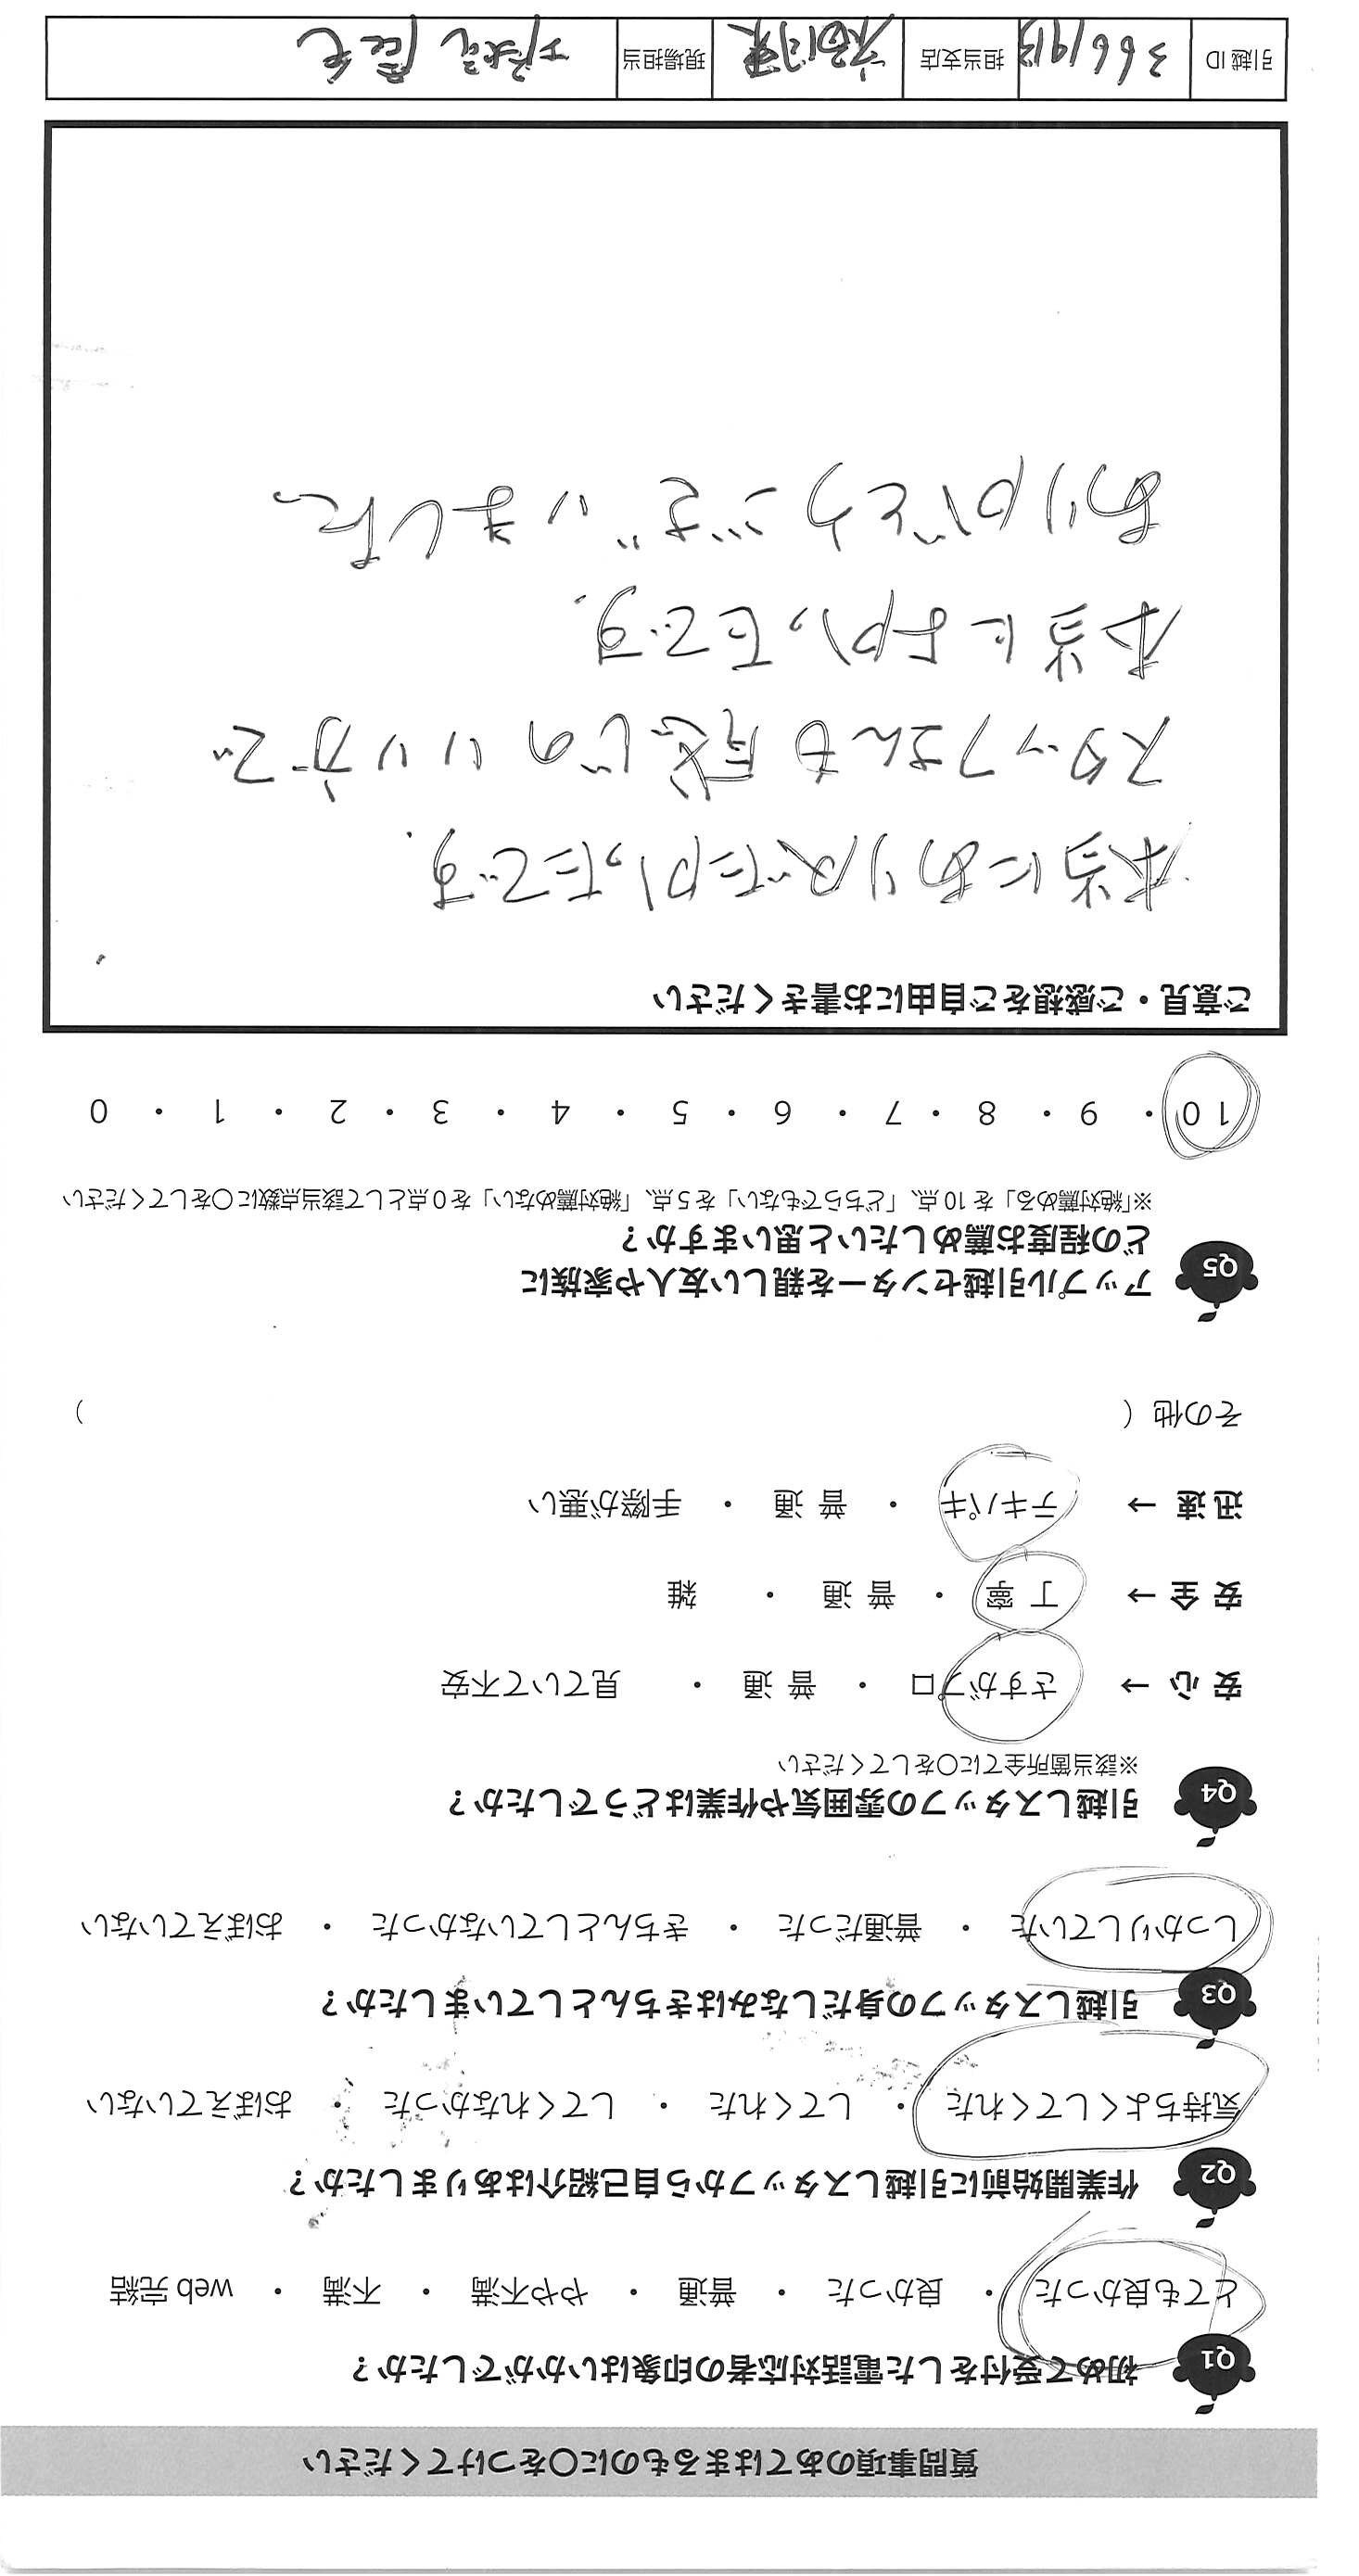 質問事項のあてはまるものに○をつけてください
Q1 初めて受付をした電話対応者の印象はいかがでしたか？
とても良かった ・ 良かった ・ 普通 ・ やや不満 ・ 不満 ・ web 完結
Q2 作業開始前に引越しスタッフから自己紹介はありましたか？
気持ちよくしてくれた ・ してくれた ・ してくれなかった ・ おぼえていない
Q3 引越しスタッフの身だしなみはきちんとしていましたか？
しっかりしていた ・ 普通だった ・ きちんとしていなかった ・ おぼえていない
Q4 引越しスタッフの雰囲気や作業はどうでしたか？
※該当箇所全てに○をしてください
安 心 → さすがプロ ・ 普 通 ・ 見ていて不安
安 全 → 丁 寧 ・ 普 通 ・ 雑
迅 速 → テキパキ ・ 普 通 ・ 手際が悪い
その他（ ）
Q5 アップル引越センターを親しい友人や家族に
どの程度お薦めしたいと思いますか？
※「絶対薦める」を 10 点、「どちらでもない」を 5 点、「絶対薦めない」を 0 点として該当点数に○をしてください
10 ・ 9 ・ 8 ・ 7 ・ 6 ・ 5 ・ 4 ・ 3 ・ 2 ・ 1 ・ 0
ご意見・ご感想をご自由にお書きください
本当にありがたかったです.
スタッフさんも感じのいい方で
本当によかったです.
ありがとうございました、
引越 ID 担当支店 現場担当